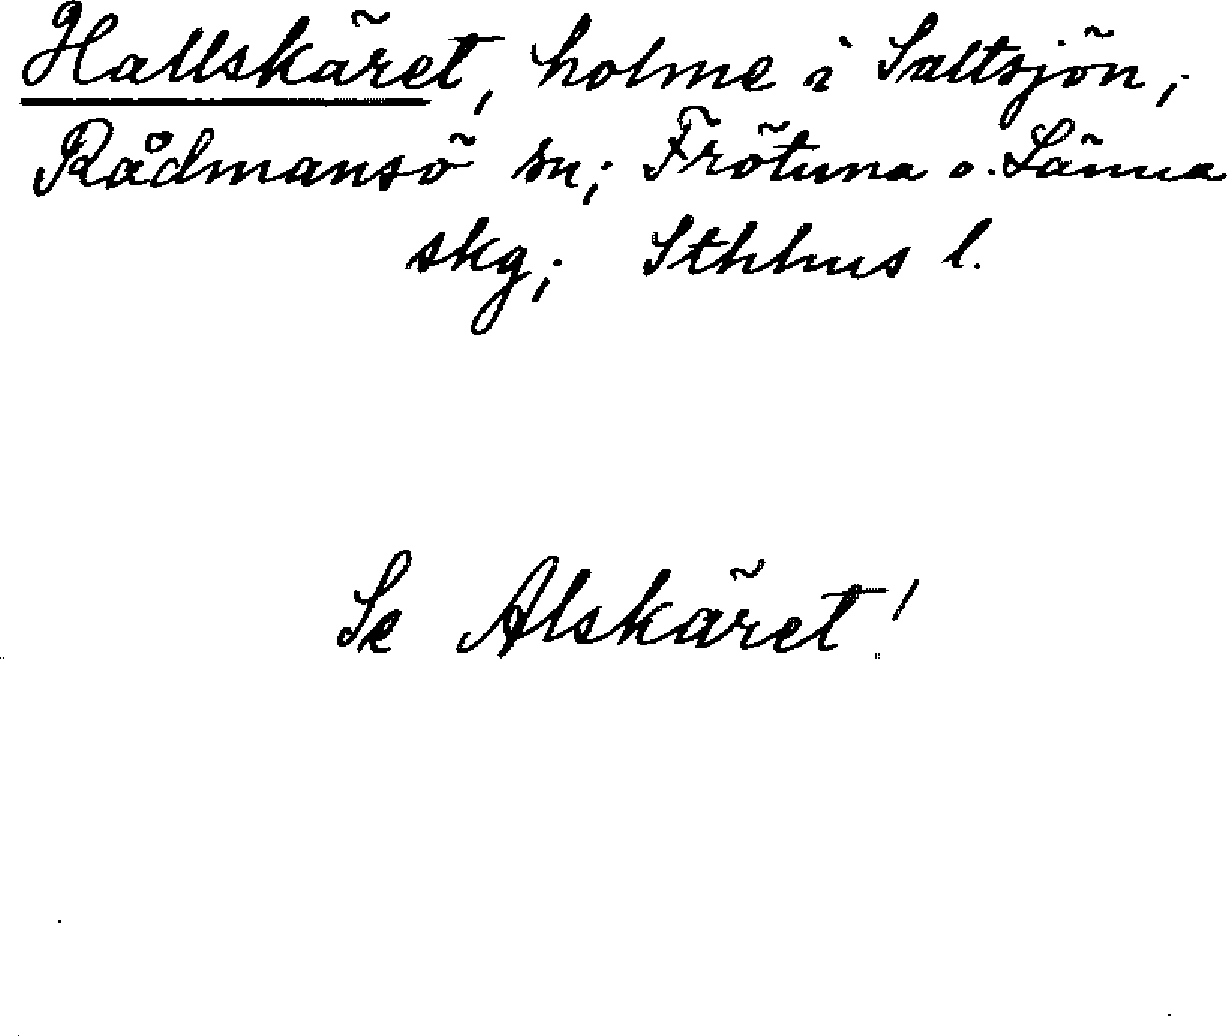 Hallskäret, holme i Saltsjön;
Rådmansö sn; Frötuna o. Länna
skg; Sthhus l.
Se Alskäret!